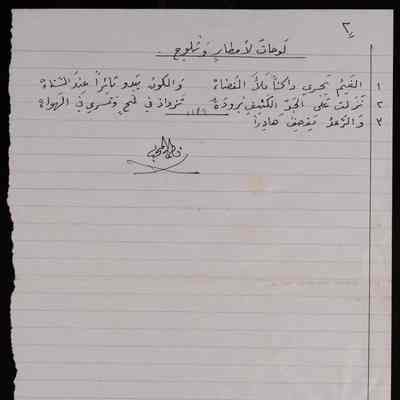 ٢
لوحات لأمطار وثلوج
١ الغَيمُ يَجري داكناً مَلأَ الفضاءْ والكونُ يبدو ثائراً عندَ الشتاءْ
٢ نَزَلَت على الجوِّ الكثيفِ برودةٌ تزداد في وتسري في الهواءْ
٣ والرَّعدُ يقصِفُ هادِراً